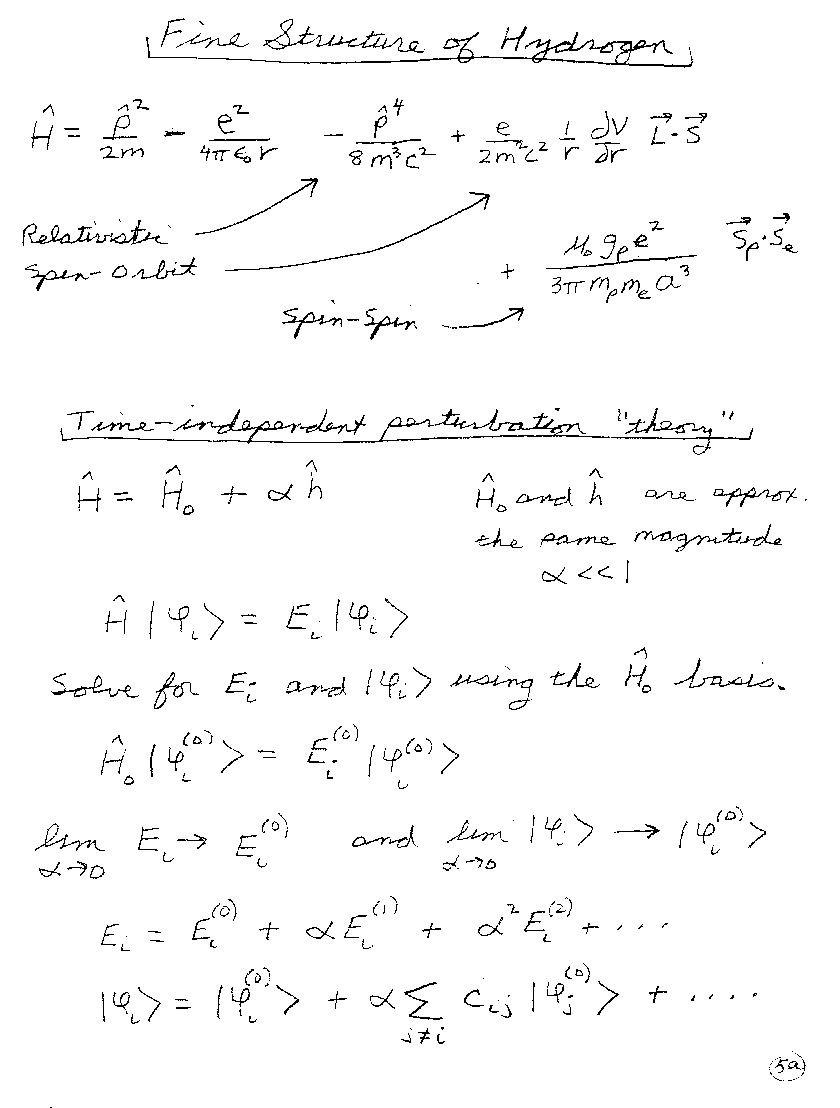 Fine Structure of Hydrogen
Ĥ = p̂²/2m − e²/4πε₀r − p̂⁴/8m³c² + e/2m²c² 1/r dV/dr L⃗·S⃗
Relativistic
Spin-Orbit
+ μ₀ gₚe²/3π mₚmₑa³ S⃗ₚ·S⃗ₑ
Spin-Spin
Time-independent perturbation "theory"
Ĥ = Ĥ₀ + αĥ
Ĥ₀ and ĥ are approx.
the same magnitude
α << 1
Ĥ |φᵢ> = Eᵢ |φᵢ>
Solve for Eᵢ and |φᵢ> using the Ĥ₀ basis.
Ĥ₀ |φᵢ⁽⁰⁾> = Eᵢ⁽⁰⁾ |φᵢ⁽⁰⁾>
lim α→0 Eᵢ → Eᵢ⁽⁰⁾ and lim α→0 |φᵢ> → |φᵢ⁽⁰⁾>
Eᵢ = Eᵢ⁽⁰⁾ + αEᵢ⁽¹⁾ + α²Eᵢ⁽²⁾ + ....
|φᵢ> = |φᵢ⁽⁰⁾> + α Σ j≠i cᵢⱼ |φⱼ⁽⁰⁾> + ....
5a